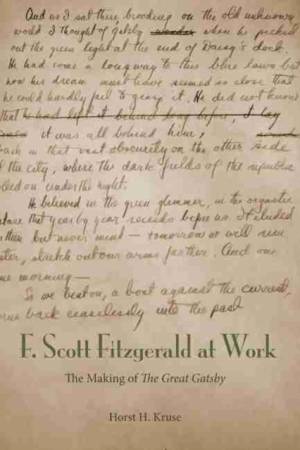 And as I sat there brooding on the old unknown
world I thought of Gatsby when he picked
out the green light at the end of Daisy's dock.
He had come a long way to this blue lawn but
now his dream must have seemed so close that
he could hardly fail to grasp it. He did not know
that he had left it behind long before, I lay
it was all behind him,
back in that vast obscurity on the other side
of the city, where the dark fields of the republic
rolled on under the night.
He believed in the green glimmer, in the orgastic
future that year by year recedes before us. It eluded
us then but never mind — tomorrow we will run
faster, stretch out our arms farther. And one
fine morning —
So we beat on, a boat against the current,
borne back ceaselessly into the past
F. Scott Fitzgerald at Work
The Making of The Great Gatsby
Horst H. Kruse